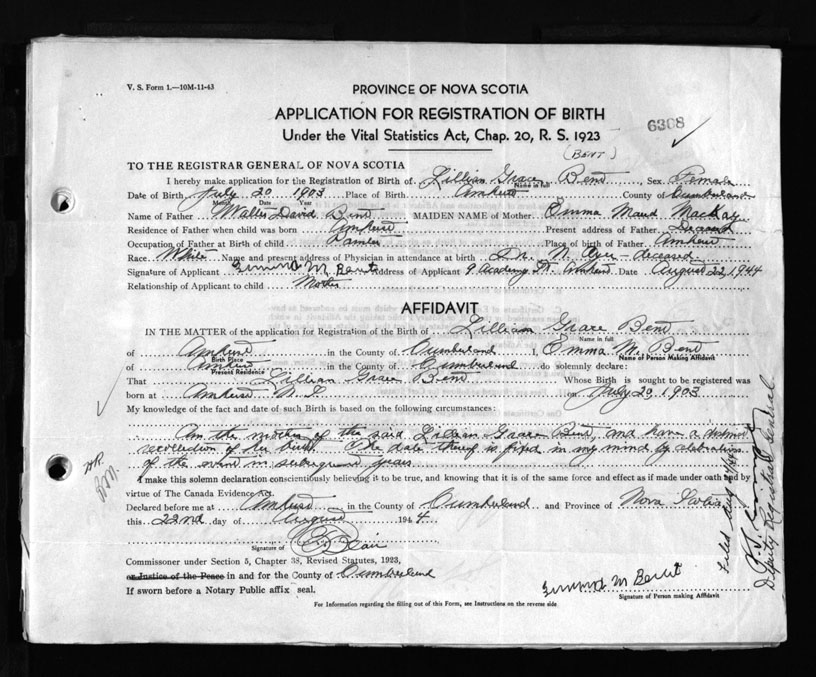 V. S. Form 1.—10M-11-43
PROVINCE OF NOVA SCOTIA
APPLICATION FOR REGISTRATION OF BIRTH
Under the Vital Statistics Act, Chap. 20, R. S. 1923
6308
(BENT)
TO THE REGISTRAR GENERAL OF NOVA SCOTIA
I hereby make application for the Registration of Birth of Lillian Grace Bent, Sex Female
Name in full
Date of Birth July 20 1903 Place of Birth Amherst County of Cumberland
Month Date Year
Name of Father Walter David Bent MAIDEN NAME of Mother Emma Maud MacKay
Residence of Father when child was born Amherst Present address of Father Deceased
Occupation of Father at Birth of child Place of birth of Father Amherst
Race White Name and present address of Physician in attendance at birth Dr. N. Ayer - deceased
Signature of Applicant M Bent Address of Applicant 9 Academy St. Amherst Date August 22, 1944
Relationship of Applicant to child Mother
AFFIDAVIT
IN THE MATTER of the application for Registration of the Birth of Lillian Grace Bent
Name in full
of Amherst in the County of Cumberland I, Emma M. Bent
Birth Place Name of Person Making Affidavit
of Amherst in the County of Cumberland do solemnly declare:
Present Residence
That Lillian Grace Bent Whose Birth is sought to be registered was
born at Amherst N. S. on July 20, 1903
My knowledge of the fact and date of such Birth is based on the following circumstances:
Am the mother of the said Lillian Grace Bent, and have a distinct
recollection of her birth. The date thereof is fixed in my mind by celebrations
of the same in subsequent years.
I make this solemn declaration conscientiously believing it to be true, and knowing that it is of the same force and effect as if made under oath and by
virtue of The Canada Evidence Act.
Declared before me at Amherst in the County of Cumberland and Province of Nova Scotia
this 22nd day of August 1944.
Signature of
Commissioner under Section 5, Chapter 38, Revised Statutes, 1923,
or Justice of the Peace in and for the County of Cumberland
If sworn before a Notary Public affix seal.
M Bent
Signature of Person making Affidavit
For Information regarding the filling out of this Form, see Instructions on the reverse side
Filed Aug 24/44
Deputy Registrar General